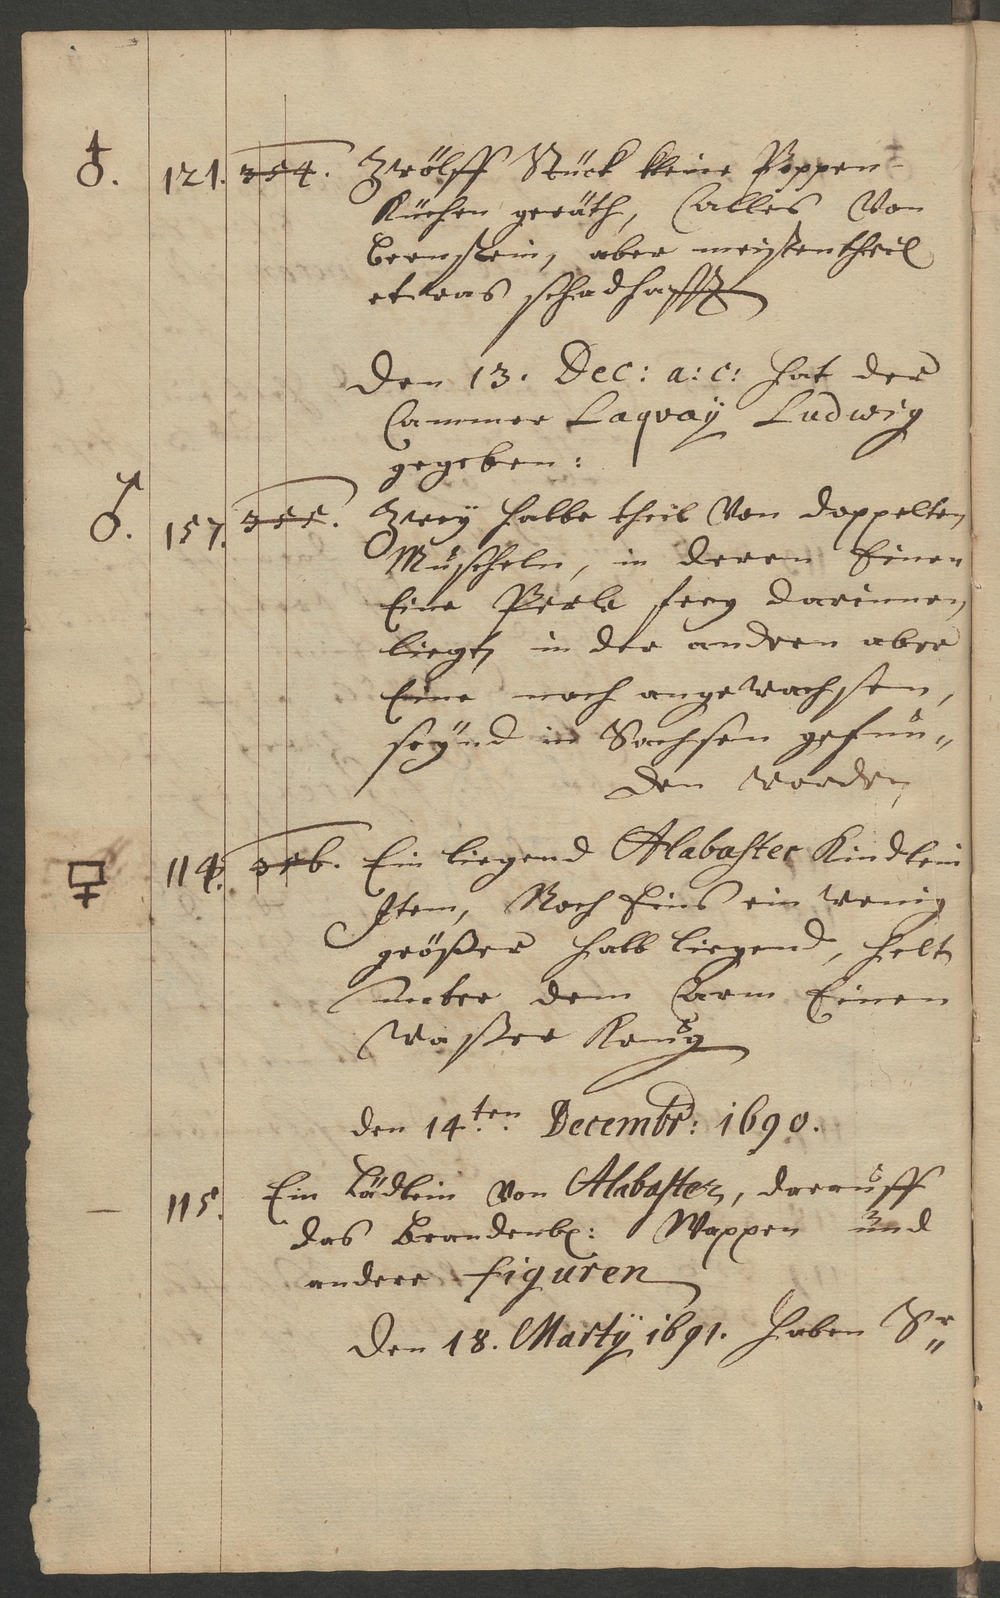 ♁. 121. 354. Zwölff Stück kleine Poppen-
Küchen geräth, Alles Von
Bernstein, aber meistentheil
etwas schadhafft
Den 13. Dec: a: c: hat der
Cammer Laqvaÿ Ludwig
gegeben:
♂. 157. 355. Zweÿ halbe theil Von doppelten
Muscheln, in deren Einen
Eine Perle freÿ darinnen
liegt, in der andren aber
Eine noch angewachsen,
seÿnd in Sachsen gefun„
den worden
114. 356. Ein liegend Alabaster Kindlein
Item, Noch Eins ein wenig
größer halb liegend, helt
unter dem Arm Einen
Waßer Krug
den 14.ten Decembr: 1690.
– 115. Ein Lädlein von Alabaster, darauff
das Brandenb: Wappen und
andere figuren
Den 18. Martÿ 1691. haben Sr„